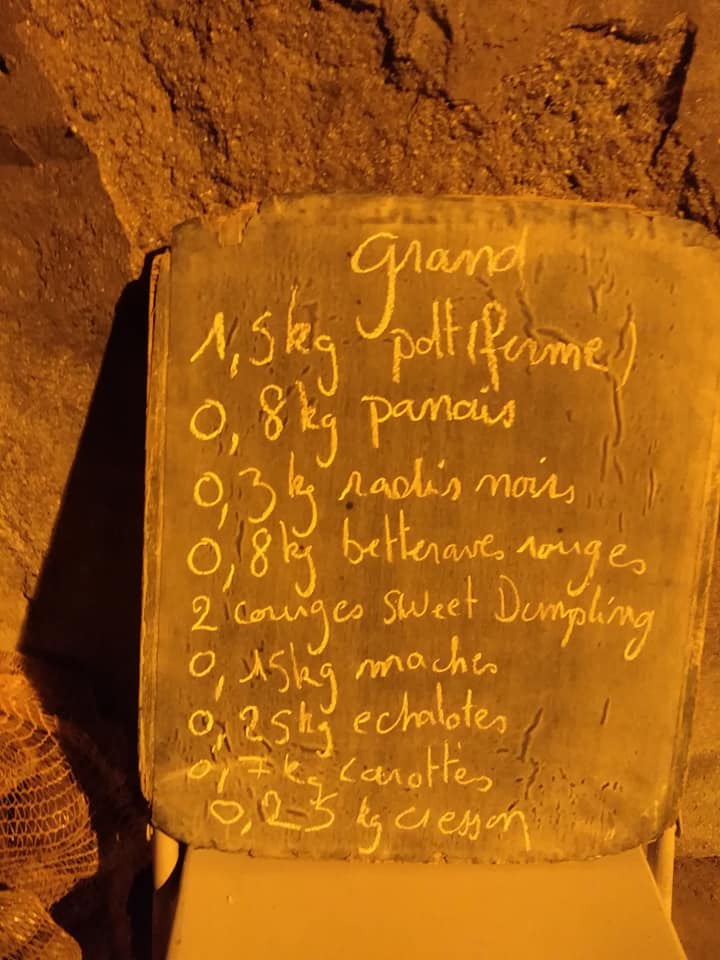 Grand
1,5kg pdt (ferme)
0,8kg panais
0,3kg radis noirs
0,8kg betteraves rouges
2 courges Sweet Dumpling
0,15kg maches
0,25kg echalotes
0,7kg carottes
0,25 kg cresson